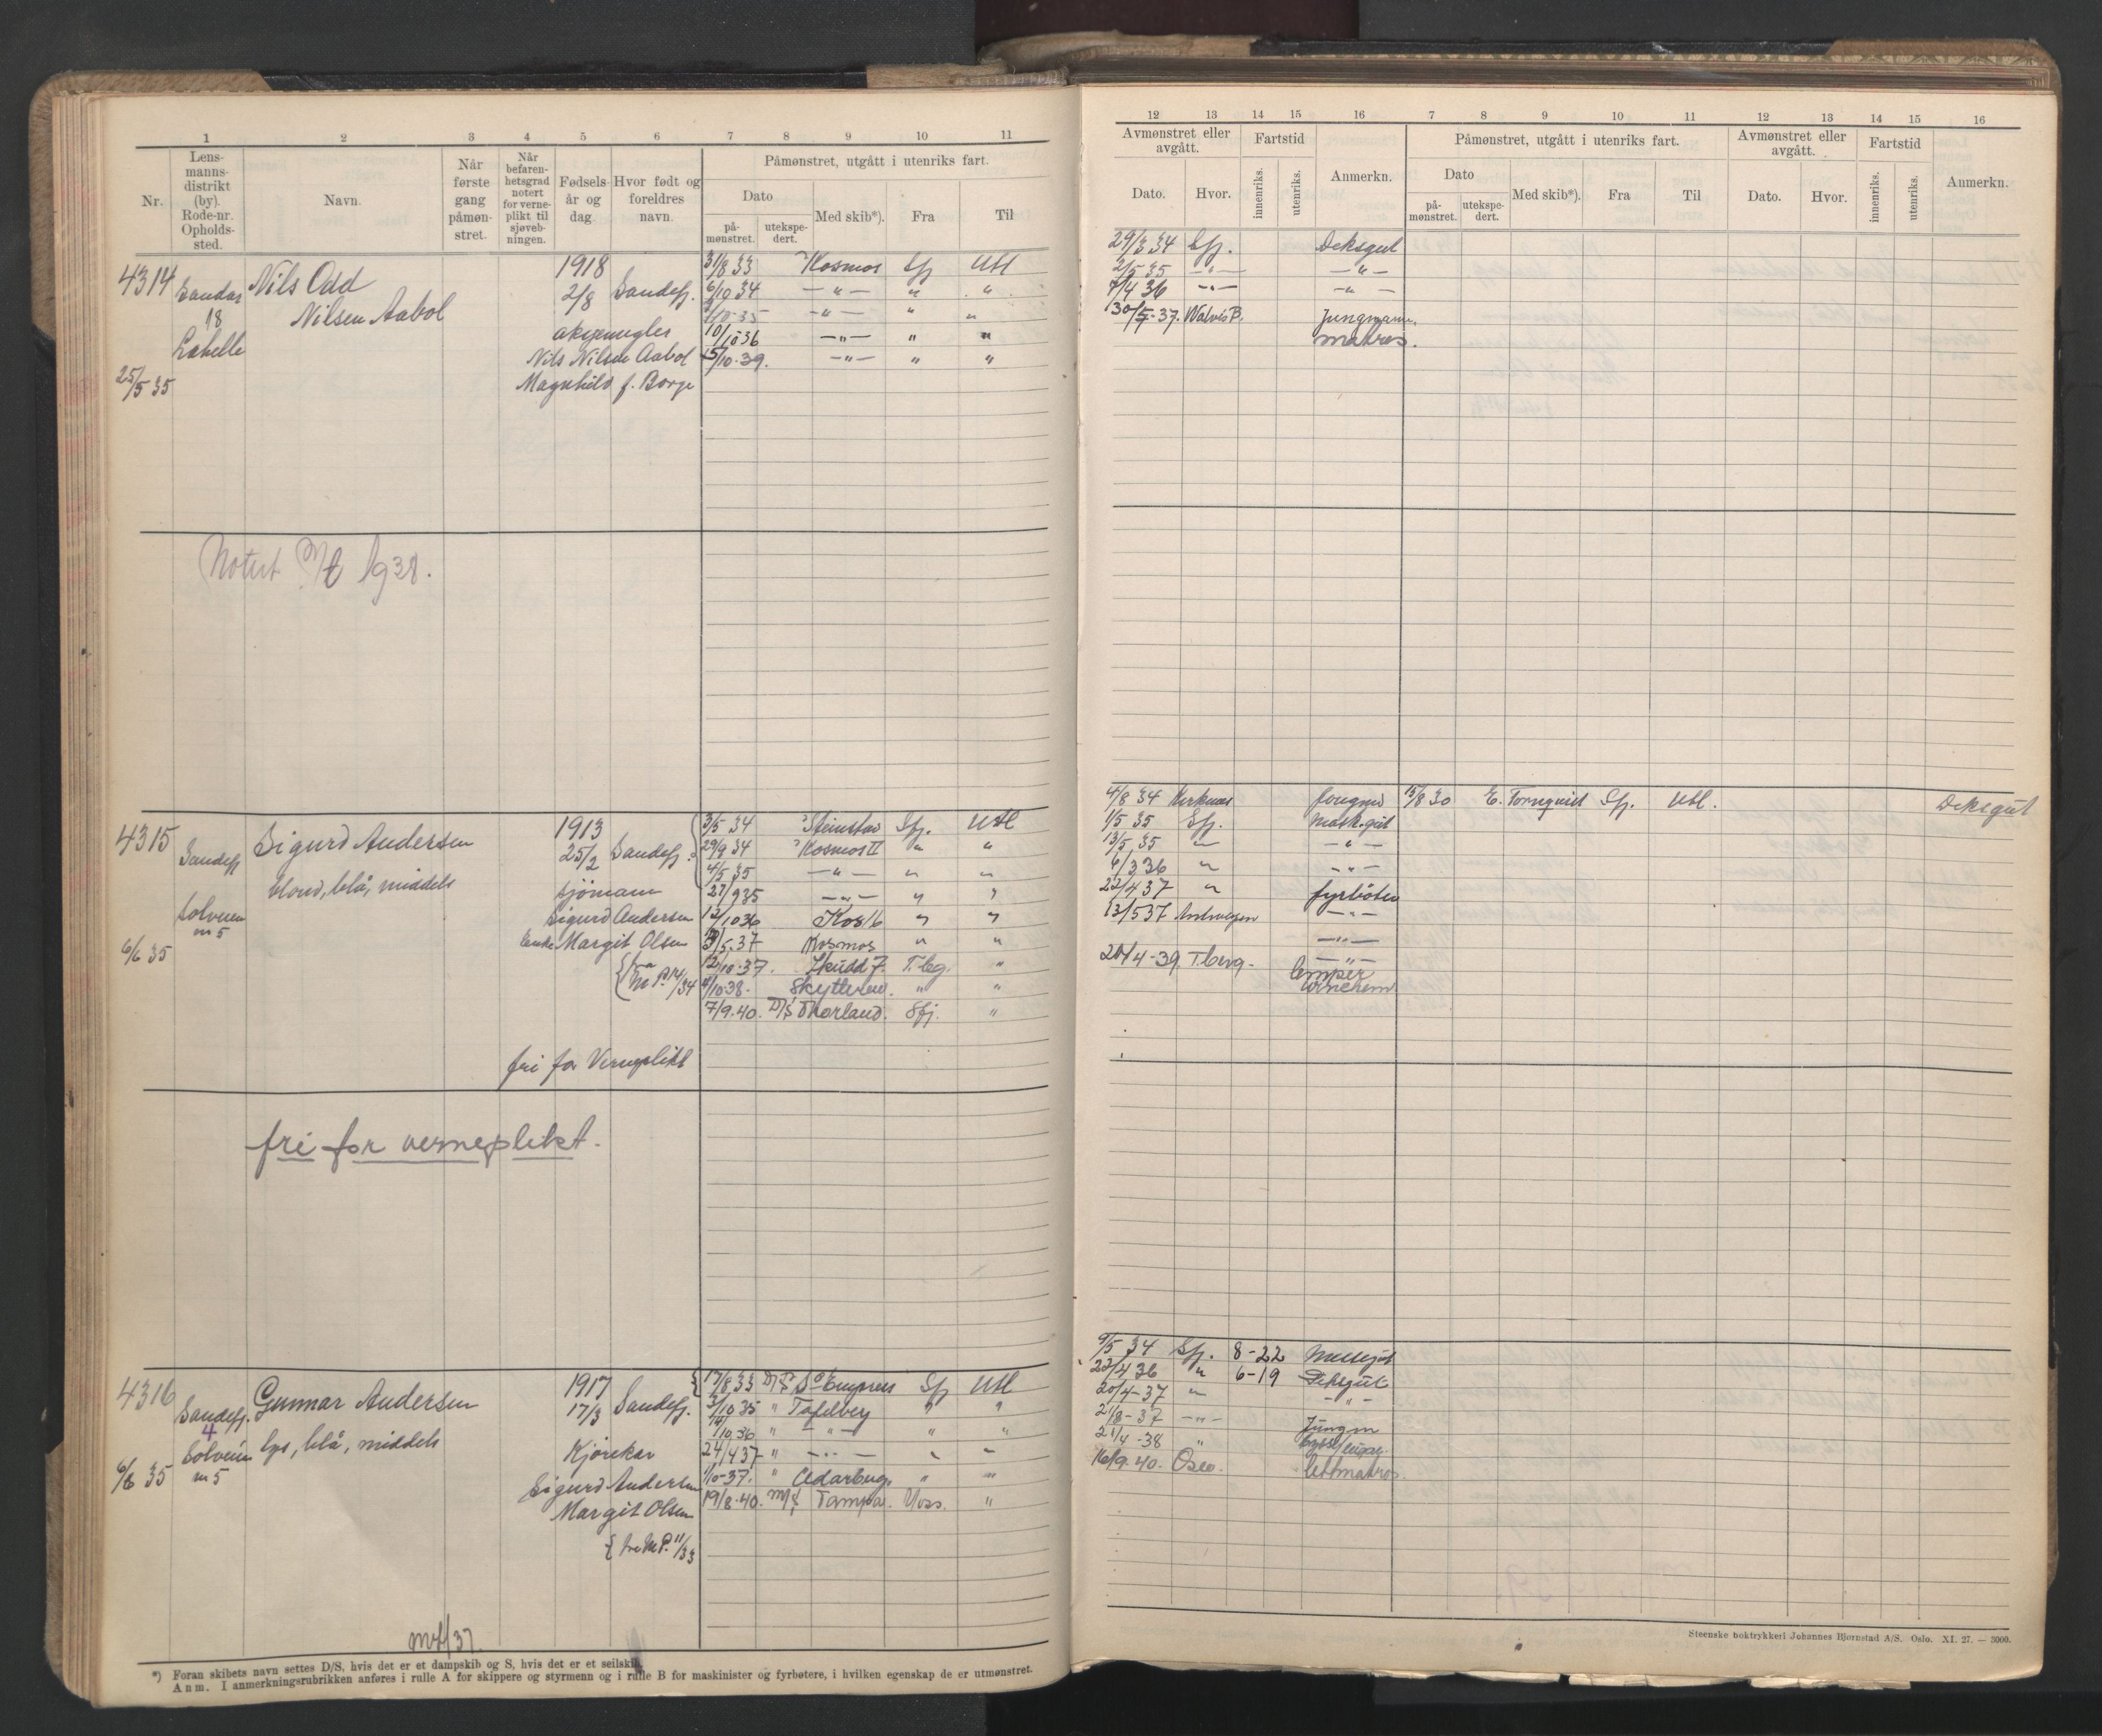 1 2 3 4 5 6 7 8 9 10 11
Nr.
Lens-
manns-
distrikt
(by).
Rode-nr.
Opholds-
sted.
Navn.
Når
første
gang
påmøn-
stret.
Når
befaren-
hetsgrad
notert
for verne-
plikt til
sjøveb-
ningen.
Fødsels-
år og
dag.
Hvor født og
foreldres
navn.
Påmønstret, utgått i utenriks fart.
Dato
på-
mønstret.
utekspe-
dert.
Med skib*).
Fra
Til
4314 Sandar Nils Odd 1918 31/8 33 Kosmos Sfj Utl
18 Nilsen Aabol 2/8 Sandefj. 6/10 34 — " — " "
/10-35 — " — " "
Labelle 10/10 36 — " — " "
Nils Nilsen Aabol 15/10-39. — " — " "
25/5 35 Magnhild f. Borge
Notert 1938.
4315 Sandefj Sigurd Andersen 1913 3/5 34 Steinstad Sfj. Utl
25/2 Sandefj. 29/9 34 Kosmos II " "
blond, blå, middels 4/5 35 — " — " "
sjömann 27/9 35 — " — " "
Solveien Sigurd Andersen 12/10 36 Kos 16 " "
m 5 Margit Olsen /5.37 Kosmos " "
6/6 35 12/10-37. Skudd 7. T.bg. "
/34 /10-38. Skytteren. " "
7/9.40. D/S Thorland. Sfj. "
fri for Verneplikt
fri for verneplikt.
4316 Sandefj. Gunnar Andersen 1917 17/8 33 D/S So Empress Sfj Utl
4 17/3 Sandefj. /10 35 " Tafelberg " "
Solveien lys, blå, middels /10 36 " — " — " "
6/6 35 m 5 Kjörekar 24/4 37 " — " — " "
Sigurd Andersen 1/10-37. " Cedarbug. " "
Margit Olsen 19/8-40. M/S Tampa. Moss. "
M.P. 11/33
/37.
*) Foran skibets navn settes D/S, hvis det er et dampskib og S, hvis det er et seilskib.
Anm. I anmerkningsrubrikken anføres i rulle A for skippere og styrmenn og i rulle B for maskinister og fyrbøtere, i hvilken egenskap de er utmønstret.
12 13 14 15 16 7 8 9 10 11 12 13 14 15 16
Avmønstret eller
avgått.
Fartstid
Dato.
Hvor.
innenriks.
utenriks.
Anmerkn.
Påmønstret, utgått i utenriks fart.
Dato
på-
mønstret.
utekspe-
dert.
Med skib*).
Fra
Til
Avmønstret eller
avgått.
Fartstid
Dato.
Hvor.
innenriks.
utenriks.
Anmerkn.
29/3 34 Sfj. Deksgut
2/5 35 — " — — " —
7/4 36 — " — — " —
30/5-37. Walvis B. Jungmann.
matros.
4/8 34 Kirknes 15/8 30 E. Tornquist Sfj. Utl. Deksgut
1/5 35 Sfj. Mask.gut
13/5 35 " — " —
6/3 36 " — " —
22/4 37 " fyrböter
13/5 37 — " —
— " —
20/4-39. T.berg. — " —
lemper
9/5 34 Sfj. 8-22 Messegut
22/4 36 " 6-19 Deksgut
20/4-37 " — " —
21/8-37 — " — Jungm
21/4-38 "
16/9.40. Oslo. lettmatros
Steenske boktrykkeri Johannes Bjørnstad A/S. Oslo. XI. 27. — 3000.